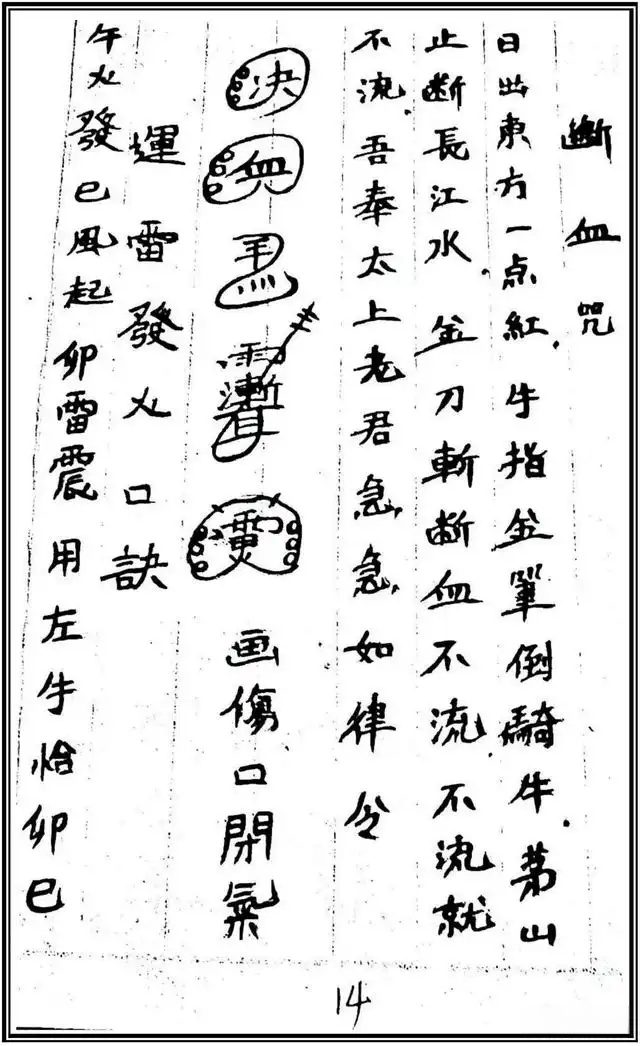 斷血咒
日出東方一点紅.手指金倒騎牛.茅山
止断長江水.金刀斬断血不流.不流就
不流.吾奉太上老君急急如律令
決血画傷口閉氣
運雷發火口訣
午火發巳風起卯雷震用左手恰卯巳
14